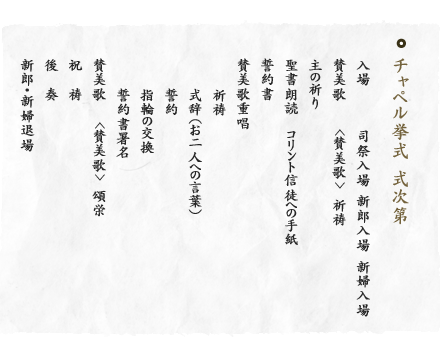 チャペル挙式 式次第
入場 司祭入場 新郎入場 新婦入場
賛美歌 〈賛美歌〉 祈祷
主の祈り
聖書朗読 コリント信徒への手紙
誓約書
賛美歌重唱
祈祷
式辞(お二人への言葉)
誓約
指輪の交換
誓約書署名
賛美歌 〈賛美歌〉 頌栄
祝祷
後奏
新郎・新婦退場